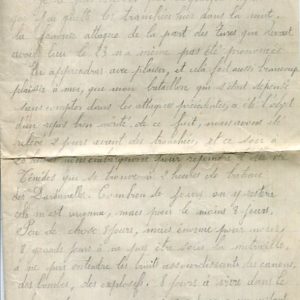 que j'ai quitté les tranchées hier dans la nuit.
La fameuse attaque de la part des turcs qui devait
avoir lieu le 23 n'a même pas été prononcée
Tu apprendras avec plaisir, et cela fait aussi beaucoup
plaisir à moi, que mon bataillon qui s'était dépensé
sans compter dans les attaques précédentes a été l'objet
d'un repos bien mérité. De ce fait, nous avons été
relevé 2 jours avant des tranchées, et ce soir à
nous embarquons pour rejoindre
Ténédos qui se trouve à 2 heures de bateau
des Dardanelles. Combien de jours, on y restera
cela m'est inconnu, mais pour le moins 8 jours.
Peu de chose 8 jours, mais énorme pour nous,
8 grands jours à ne pas être sous la mitraille,
à ne pas entendre les bruits assourdissants des canons,
des bombes, des explosifs. 8 jours à vivre dans le